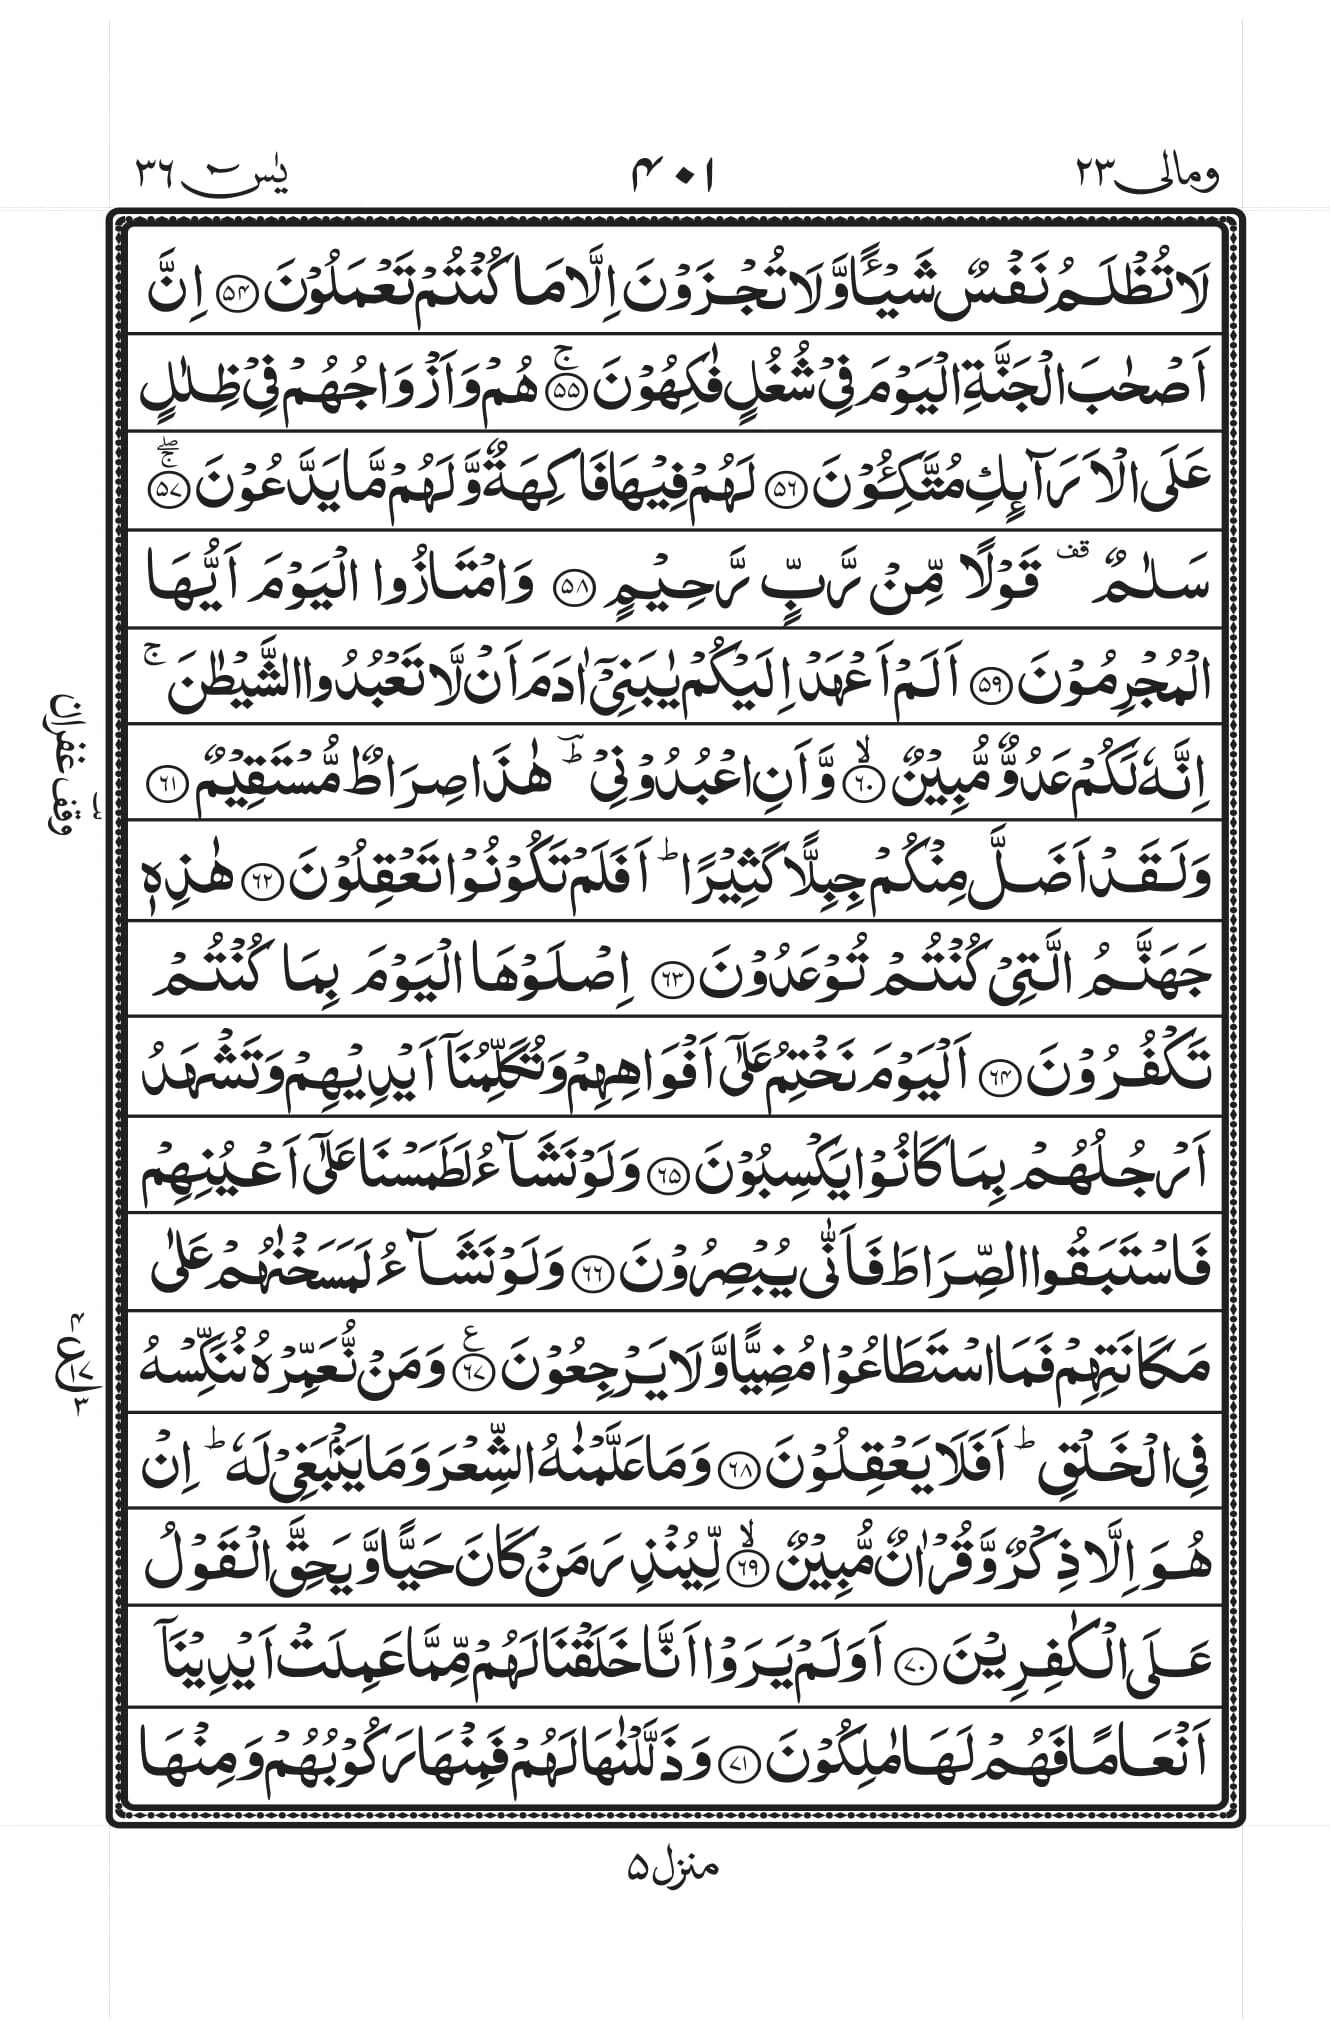 ومالی ۲۳ ۴۰۱ یٰسٓ ۳۶
لَا تُظْلَمُ نَفْسٌ شَيْـًٔا وَّلَا تُجْزَوْنَ اِلَّا مَا كُنْتُمْ تَعْمَلُوْنَ ۵۴ اِنَّ
اَصْحٰبَ الْجَنَّةِ الْيَوْمَ فِيْ شُغُلٍ فٰكِهُوْنَ ۵۵ۚ هُمْ وَاَزْوَاجُهُمْ فِيْ ظِلٰلٍ
عَلَى الْاَرَآىِٕكِ مُتَّكِـُٔوْنَ ۵۶ لَهُمْ فِيْهَا فَاكِهَةٌ وَّلَهُمْ مَّا يَدَّعُوْنَ ۵۷ۚۖ
سَلٰمٌ قف قَوْلًا مِّنْ رَّبٍّ رَّحِيْمٍ ۵۸ وَامْتَازُوا الْيَوْمَ اَيُّهَا
الْمُجْرِمُوْنَ ۵۹ اَلَمْ اَعْهَدْ اِلَيْكُمْ يٰبَنِيْٓ اٰدَمَ اَنْ لَّا تَعْبُدُوا الشَّيْطٰنَ ۚ
اِنَّهٗ لَكُمْ عَدُوٌّ مُّبِيْنٌ ۶۰ۙ وَّاَنِ اعْبُدُوْنِيْ ؔط هٰذَا صِرَاطٌ مُّسْتَقِيْمٌ ۶۱
وَلَقَدْ اَضَلَّ مِنْكُمْ جِبِلًّا كَثِيْرًا ؕ اَفَلَمْ تَكُوْنُوْا تَعْقِلُوْنَ ۶۲ هٰذِهٖ
جَهَنَّمُ الَّتِيْ كُنْتُمْ تُوْعَدُوْنَ ۶۳ اِصْلَوْهَا الْيَوْمَ بِمَا كُنْتُمْ
تَكْفُرُوْنَ ۶۴ اَلْيَوْمَ نَخْتِمُ عَلٰٓى اَفْوَاهِهِمْ وَتُكَلِّمُنَآ اَيْدِيْهِمْ وَتَشْهَدُ
اَرْجُلُهُمْ بِمَا كَانُوْا يَكْسِبُوْنَ ۶۵ وَلَوْ نَشَآءُ لَطَمَسْنَا عَلٰٓى اَعْيُنِهِمْ
فَاسْتَبَقُوا الصِّرَاطَ فَاَنّٰى يُبْصِرُوْنَ ۶۶ وَلَوْ نَشَآءُ لَمَسَخْنٰهُمْ عَلٰى
مَكَانَتِهِمْ فَمَا اسْتَطَاعُوْا مُضِيًّا وَّلَا يَرْجِعُوْنَ ۶۷ ع وَمَنْ نُّعَمِّرْهُ نُنَكِّسْهُ
فِي الْخَلْقِ ؕ اَفَلَا يَعْقِلُوْنَ ۶۸ وَمَا عَلَّمْنٰهُ الشِّعْرَ وَمَا يَنْۢبَغِيْ لَهٗ ؕ اِنْ
هُوَ اِلَّا ذِكْرٌ وَّقُرْاٰنٌ مُّبِيْنٌ ۶۹ۙ لِّيُنْذِرَ مَنْ كَانَ حَيًّا وَّيَحِقَّ الْقَوْلُ
عَلَى الْكٰفِرِيْنَ ۷۰ اَوَلَمْ يَرَوْا اَنَّا خَلَقْنَا لَهُمْ مِّمَّا عَمِلَتْ اَيْدِيْنَآ
اَنْعَامًا فَهُمْ لَهَا مٰلِكُوْنَ ۷۱ وَذَلَّلْنٰهَا لَهُمْ فَمِنْهَا رَكُوْبُهُمْ وَمِنْهَا
وقف غفران
ع
۴
۱۷
۳
منزل ۵